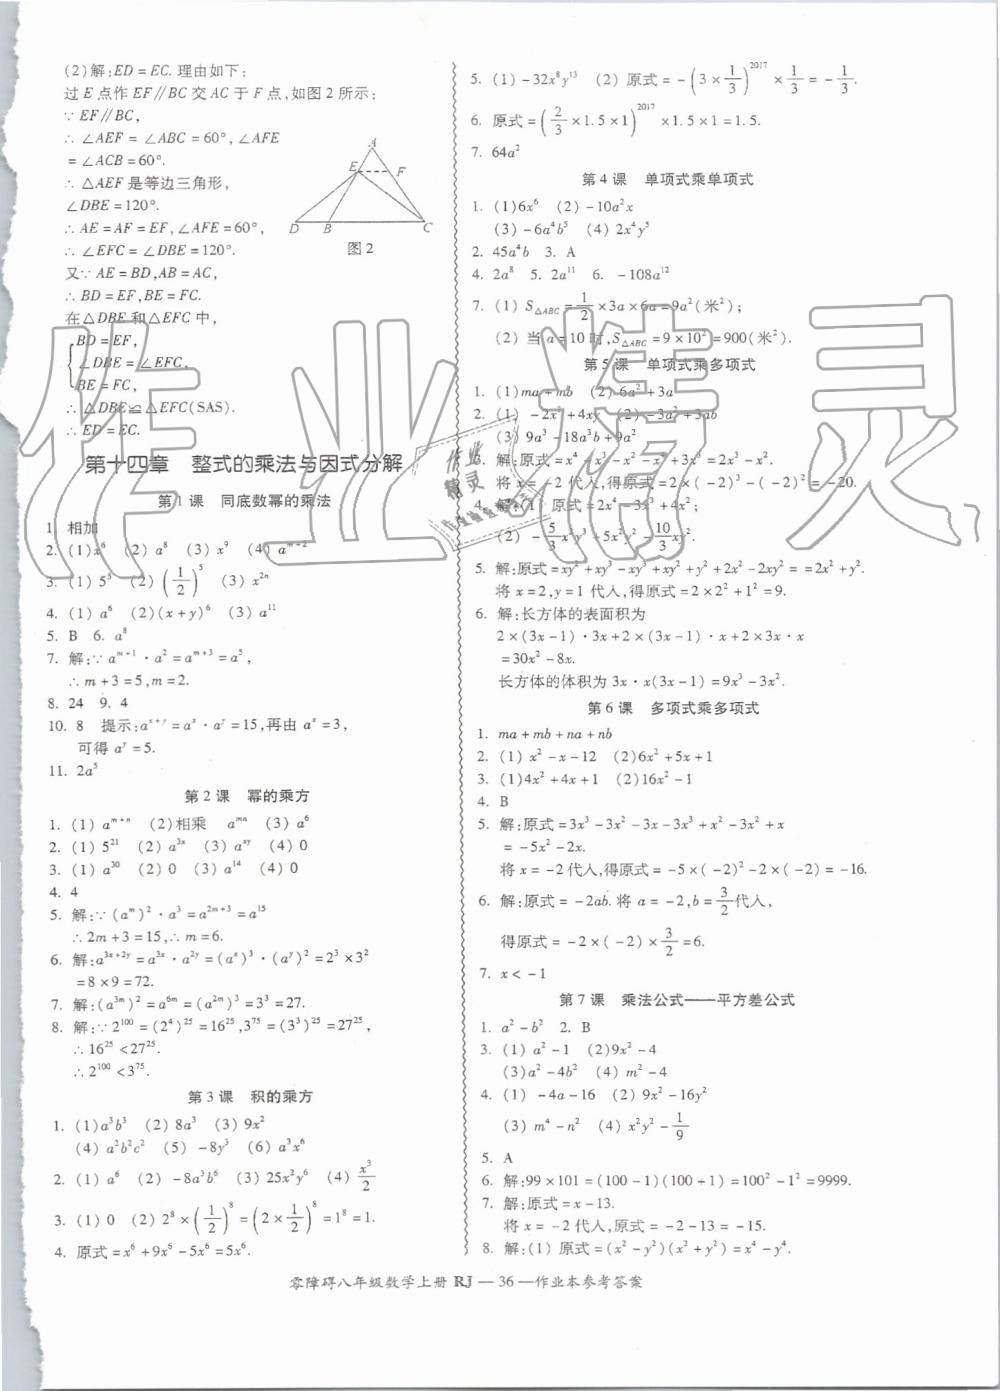 (2)解:ED=EC.理由如下:
过E点作EF∥BC交AC于F点,如图2所示:
∵EF∥BC,
∴∠AEF=∠ABC=60°,∠AFE
=∠ACB=60°.
∴△AEF是等边三角形,
∠DBE=120°.
∴AE=AF=EF,∠AFE=60°,
∴∠EFC=∠DBE=120°.
又∵AE=BD,AB=AC,
∴BD=EF,BE=FC.
在△DBE和△EFC中,
BD=EF,
∠DBE=∠EFC,
BE=FC,
∴△DBE≌△EFC(SAS).
∴ED=EC.
A
E F
D B C
图2
第十四章 整式的乘法与因式分解
第1课 同底数幂的乘法
1. 相加
2. (1)x⁶ (2)a⁸ (3)x⁹ (4)a^(m+2)
3. (1)5⁵ (2)(1/2)⁵ (3)x^(2n)
4. (1)a⁶ (2)(x+y)⁶ (3)a¹¹
5. B 6. a⁸
7. 解:∵a^(m+1)·a²=a^(m+3)=a⁵,
∴m+3=5,m=2.
8. 24 9. 4
10. 8 提示:a^(x+y)=a^x·a^y=15,再由a^x=3,
可得a^y=5.
11. 2a⁵
第2课 幂的乘方
1. (1)a^(m+n) (2)相乘 a^(mn) (3)a⁶
2. (1)5²¹ (2)a^(3x) (3)a^(xy) (4)0
3. (1)a³⁰ (2)0 (3)a¹⁴ (4)0
4. 4
5. 解:∵(a^m)²·a³=a^(2m+3)=a¹⁵
∴2m+3=15,∴m=6.
6. 解:a^(3x+2y)=a^(3x)·a^(2y)=(a^x)³·(a^y)²=2³×3²
=8×9=72.
7. 解:(a^(3m))²=a^(6m)=(a^(2m))³=3³=27.
8. 解:∵2¹⁰⁰=(2⁴)²⁵=16²⁵,3⁷⁵=(3³)²⁵=27²⁵,
∴16²⁵<27²⁵.
∴2¹⁰⁰<3⁷⁵.
第3课 积的乘方
1. (1)a³b³ (2)8a³ (3)9x²
(4)a²b²c² (5)-8y³ (6)a³x⁶
2. (1)a⁶ (2)-8a³b⁶ (3)25x²y⁶ (4)x³/2
3. (1)0 (2)2⁸×(1/2)⁸=(2×1/2)⁸=1⁸=1.
4. 原式=x⁶+9x⁶-5x⁶=5x⁶
5. (1)-32x⁸y¹³ (2)原式=-(3×1/3)²⁰¹⁷×1/3=-1/3.
6. 原式=(2/3×1.5×1)²⁰¹⁷×1.5×1=1.5.
7. 64a²
第4课 单项式乘单项式
1. (1)6x⁶ (2)-10a²x
(3)-6a⁴b⁵ (4)2x⁴y⁵
2. 45a⁴b 3. A
4. 2a⁸ 5. 2a¹¹ 6. -108a¹²
7. (1)S△ABC=1/2×3a×6a=9a²(米²);
(2)当a=10时,S△ABC=9×10²=900(米²).
第5课 单项式乘多项式
1. (1)ma+mb (2)6a²+3a
2. (1)-2x²+4xy (2)-3a²+3ab
(3)9a³-18a³b+9a²
3. 解:原式=x⁴-x³-x²-x⁴+3x³=2x³-x².
将x=-2代入,得原式=2×(-2)³-(-2)²=-20.
4. 解:(1)原式=2x⁴-3x³+4x²;
(2)
5. 解:原式=xy²+xy³-xy³+xy²+y²+2xy²-2xy²==2xy²+y².
将x=2,y=1代入,得原式=2×2²+1²=9.
6. 解:长方体的表面积为
2×(3x-1)·3x+2×(3x-1)·x+2×3x·x
=30x²-8x.
长方体的体积为3x·x(3x-1)=9x³-3x².
第6课 多项式乘多项式
1. ma+mb+na+nb
2. (1)x²-x-12 (2)6x²+5x+1
3. (1)4x²+4x+1 (2)16x²-1
4. B
5. 解:原式=3x³-3x²-3x-3x³+x²-3x²+x
=-5x²-2x.
将x=-2代入,得原式=-5×(-2)²-2×(-2)=-16.
6. 解:原式=-2ab.将a=-2,b=3/2代入,
得原式=-2×(-2)×3/2=6.
7. x<-1
第7课 乘法公式——平方差公式
1. a²-b² 2. B
3. (1)a²-1 (2)9x²-4
(3)a²-4b² (4)m²-4
4. (1)-4a-16 (2)9x²-16y²
(3)m⁴-n² (4)x²y²-1/9
5. A
6. 解:99×101=(100-1)(100+1)=100²-1²=9999.
7. 解:原式=x-13.
将x=-2代入,原式=-2-13=-15.
8. 解:(1)原式=(x²-y²)(x²+y²)=x⁴-y⁴.
零障碍八年级数学上册 RJ—36—作业本参考答案
作业精灵
作业
精灵